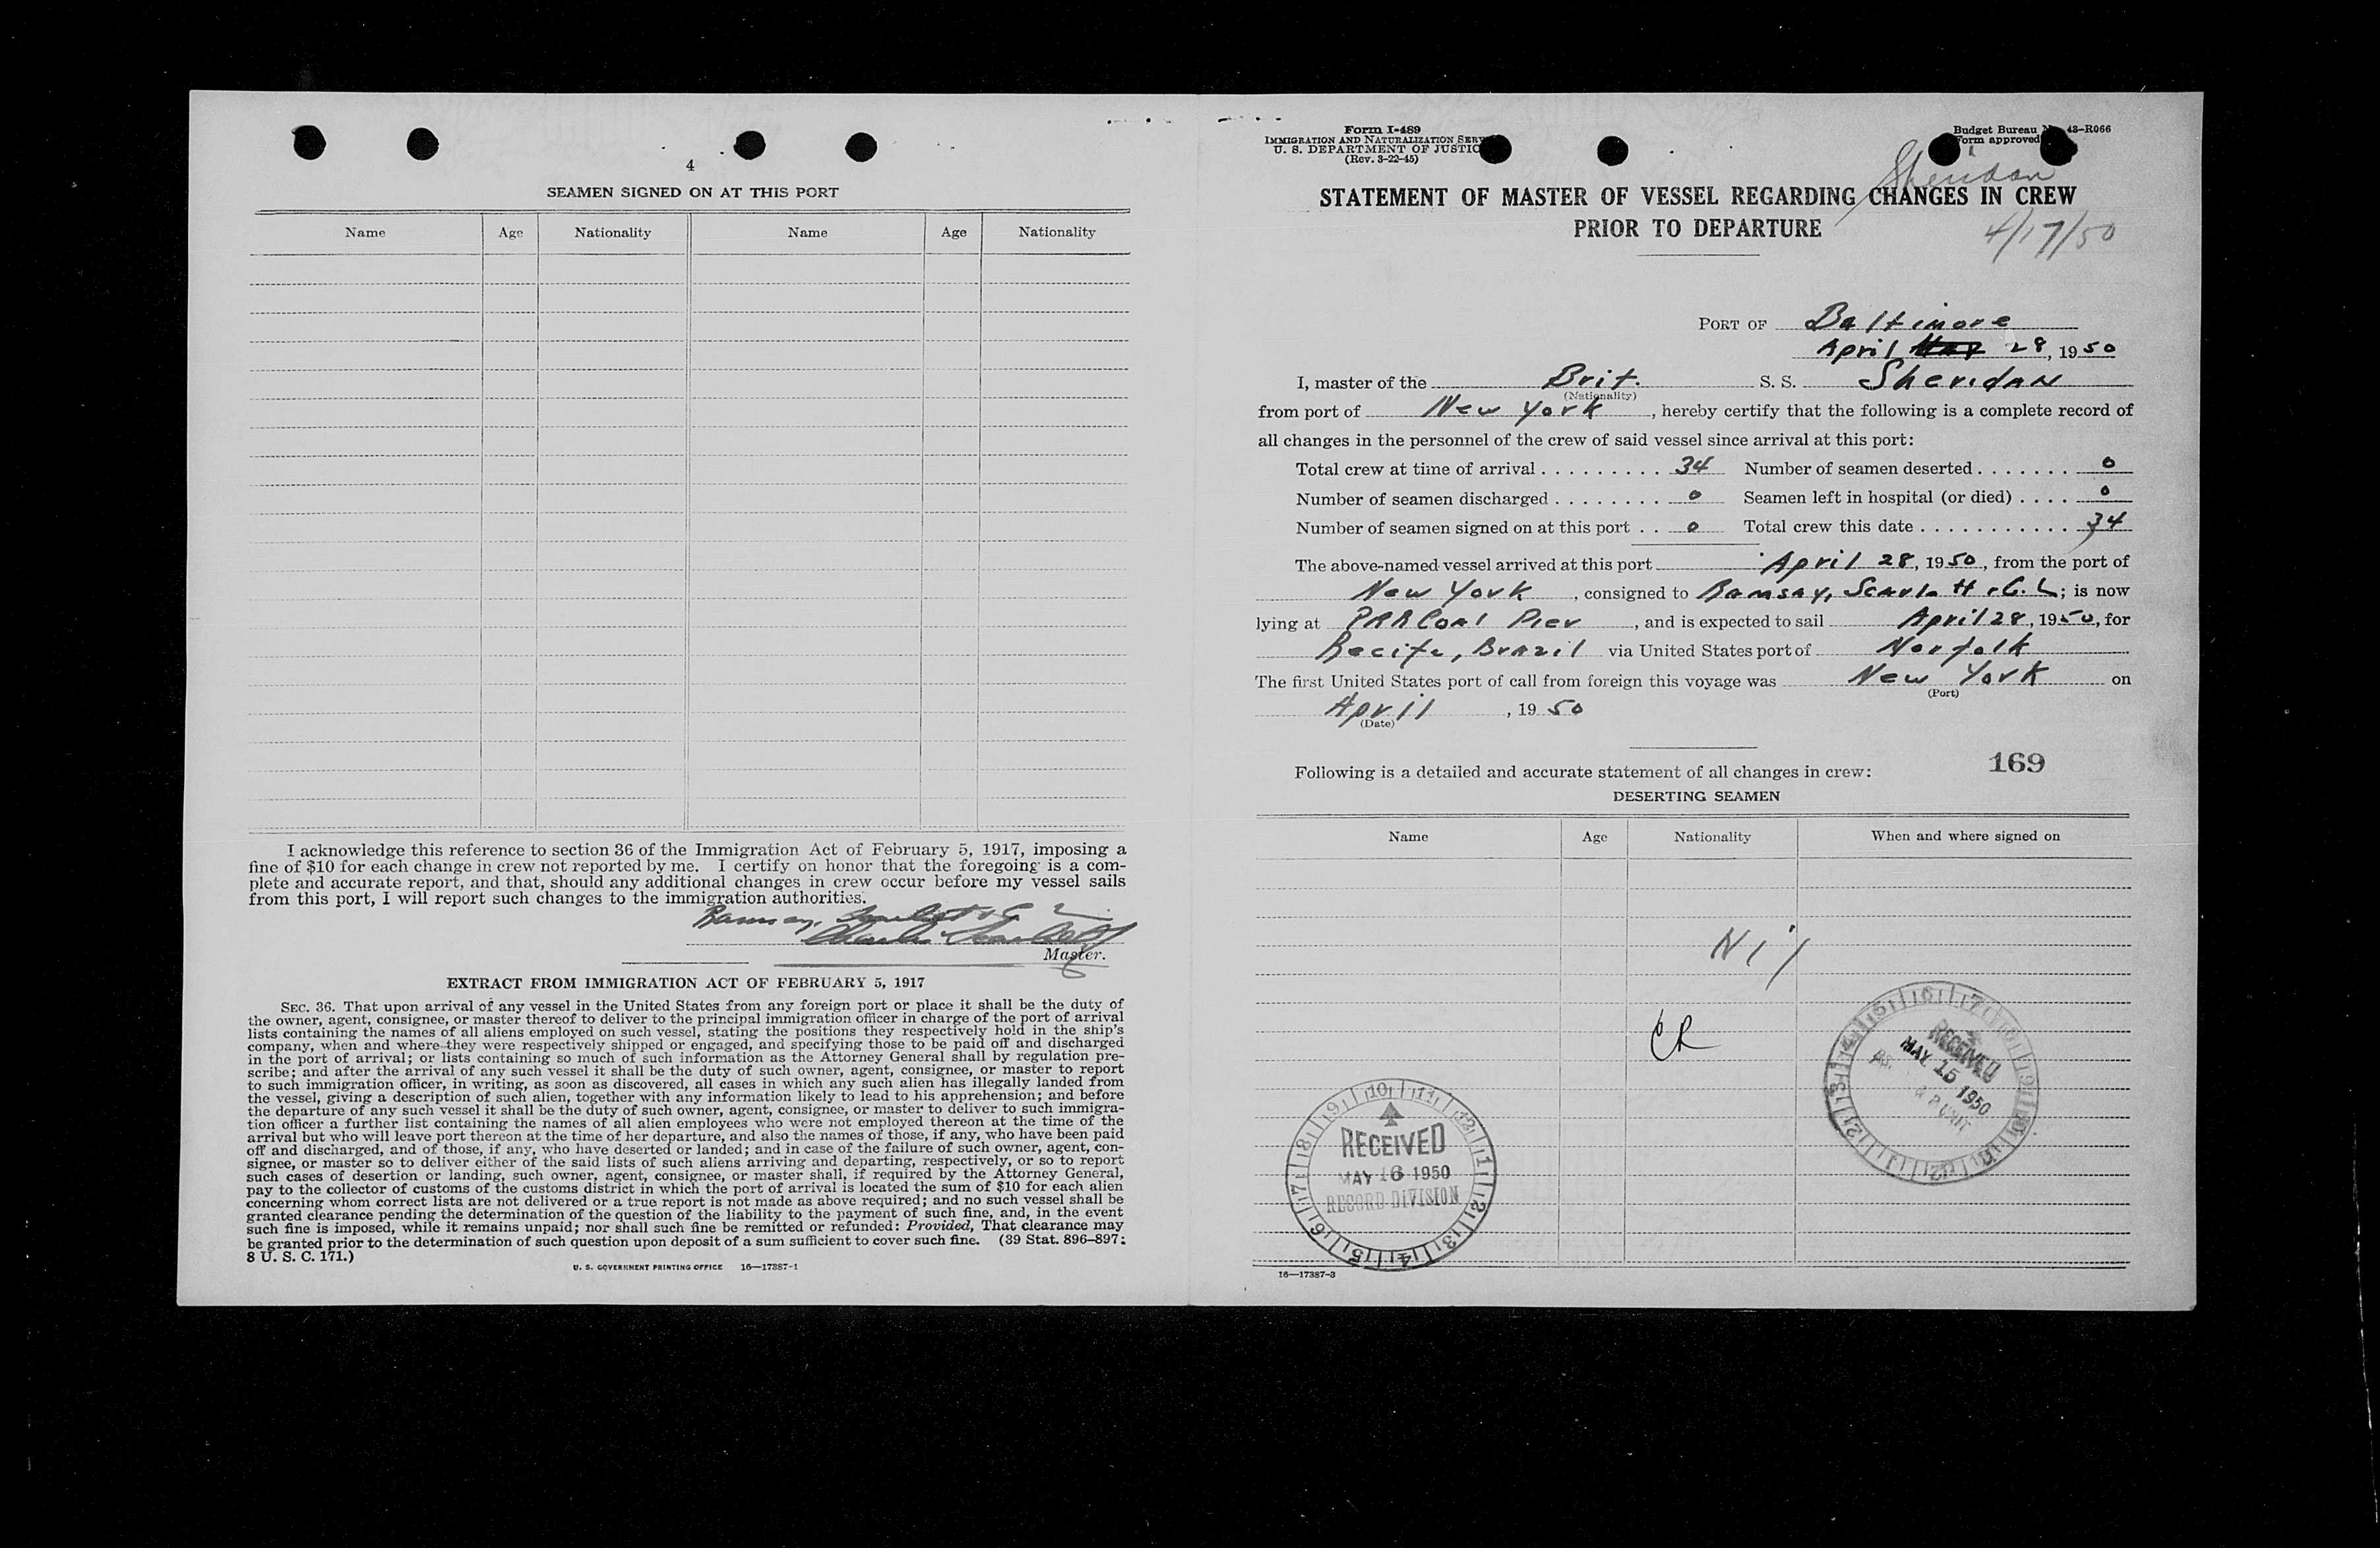 4
SEAMEN SIGNED ON AT THIS PORT
Name Age Nationality Name Age Nationality
I acknowledge this reference to section 36 of the Immigration Act of February 5, 1917, imposing a
fine of $10 for each change in crew not reported by me. I certify on honor that the foregoing is a com-
plete and accurate report, and that, should any additional changes in crew occur before my vessel sails
from this port, I will report such changes to the immigration authorities.
Ramsay,
Master.
EXTRACT FROM IMMIGRATION ACT OF FEBRUARY 5, 1917
SEC. 36. That upon arrival of any vessel in the United States from any foreign port or place it shall be the duty of
the owner, agent, consignee, or master thereof to deliver to the principal immigration officer in charge of the port of arrival
lists containing the names of all aliens employed on such vessel, stating the positions they respectively hold in the ship's
company, when and where they were respectively shipped or engaged, and specifying those to be paid off and discharged
in the port of arrival; or lists containing so much of such information as the Attorney General shall by regulation pre-
scribe; and after the arrival of any such vessel it shall be the duty of such owner, agent, consignee, or master to report
to such immigration officer, in writing, as soon as discovered, all cases in which any such alien has illegally landed from
the vessel, giving a description of such alien, together with any information likely to lead to his apprehension; and before
the departure of any such vessel it shall be the duty of such owner, agent, consignee, or master to deliver to such immigra-
tion officer a further list containing the names of all alien employees who were not employed thereon at the time of the
arrival but who will leave port thereon at the time of her departure, and also the names of those, if any, who have been paid
off and discharged, and of those, if any, who have deserted or landed; and in case of the failure of such owner, agent, con-
signee, or master so to deliver either of the said lists of such aliens arriving and departing, respectively, or so to report
such cases of desertion or landing, such owner, agent, consignee, or master shall, if required by the Attorney General,
pay to the collector of customs of the customs district in which the port of arrival is located the sum of $10 for each alien
concerning whom correct lists are not delivered or a true report is not made as above required; and no such vessel shall be
granted clearance pending the determination of the question of the liability to the payment of such fine, and, in the event
such fine is imposed, while it remains unpaid; nor shall such fine be remitted or refunded: Provided, That clearance may
be granted prior to the determination of such question upon deposit of a sum sufficient to cover such fine. (39 Stat. 896–897;
8 U. S. C. 171.)
U. S. GOVERNMENT PRINTING OFFICE 16—17387-1
Form I-489
IMMIGRATION AND NATURALIZATION SERV
U. S. DEPARTMENT OF JUSTIC
(Rev. 3-22-45)
Budget Bureau 43-R066
Form approved
Sheridan
STATEMENT OF MASTER OF VESSEL REGARDING CHANGES IN CREW
PRIOR TO DEPARTURE
4/17/50
PORT OF Baltimore
April 28, 1950
I, master of the Brit. S. S. Sheridan
(Nationality)
from port of New York, hereby certify that the following is a complete record of
all changes in the personnel of the crew of said vessel since arrival at this port:
Total crew at time of arrival . . . . . . . . . 34 Number of seamen deserted . . . . . . . 0
Number of seamen discharged . . . . . . . . 0 Seamen left in hospital (or died) . . . . 0
Number of seamen signed on at this port . . 0 Total crew this date . . . . . . . . . . . . 34
The above-named vessel arrived at this port April 28, 1950, from the port of
New York, consigned to Ramsay, ; is now
lying at PRR Coal Pier, and is expected to sail April 28, 1950, for
Recife, Brazil via United States port of Norfolk
The first United States port of call from foreign this voyage was New York on
(Port)
April, 1950
(Date)
169
Following is a detailed and accurate statement of all changes in crew:
DESERTING SEAMEN
Name Age Nationality When and where signed on
Nil
CR
RECEIVED
MAY 15 1950
RECEIVED
MAY 16 1950
RECORD DIVISION
16—17387-3